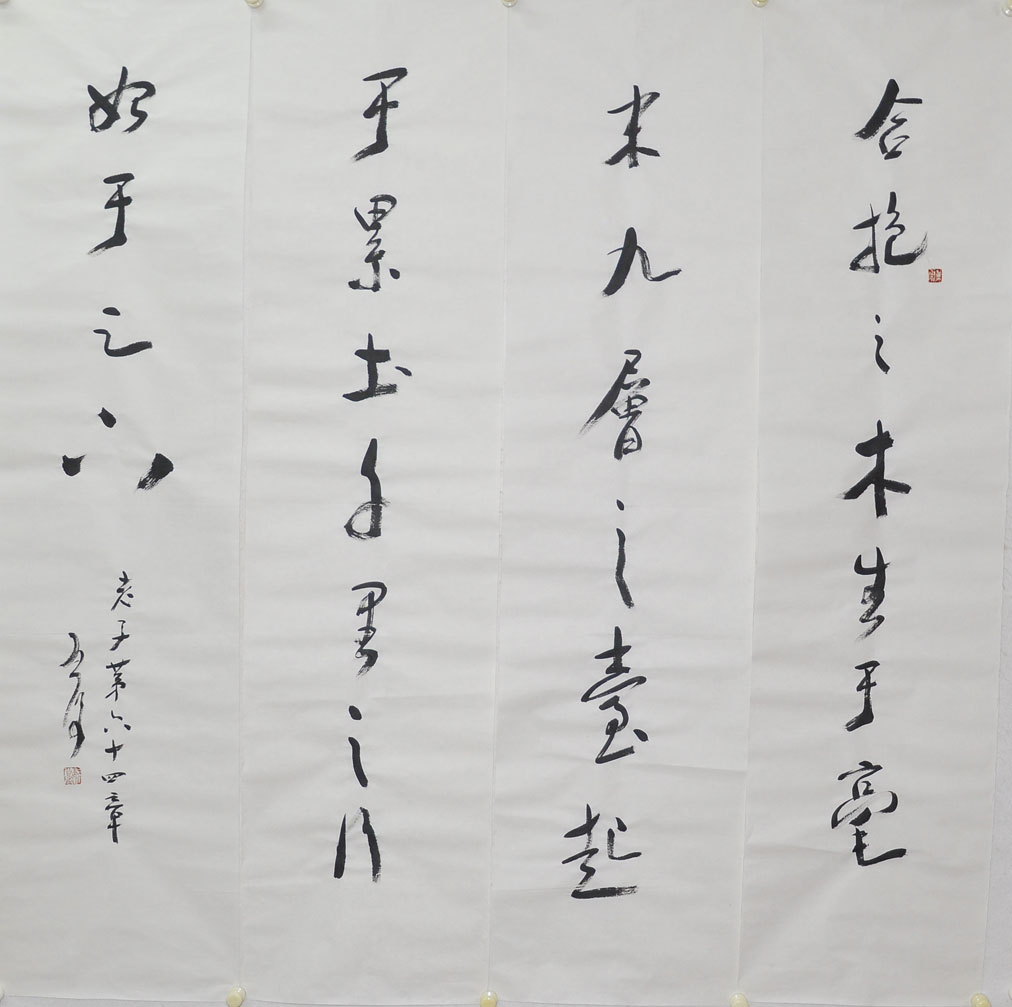 合抱之木生于毫
末九層之臺起
于累土千里之行
始于足下
老子第六十四章